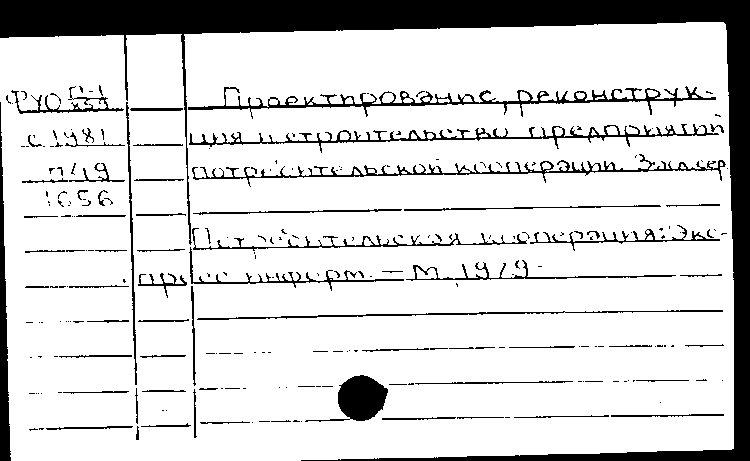 ФУО П-1
с 1981
П/19
1656
Проектирование, реконструк-
ция и строительство предприятий
потребительской кооперации. Экл.сер
Потребительская кооперация: Экс-
пресс информ. — М, 1979-